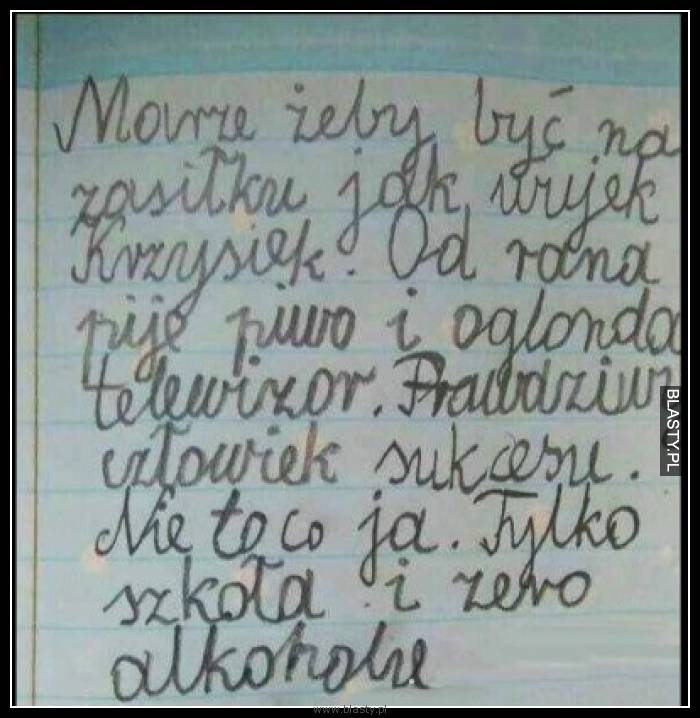 Marze żeby być na
zasiłku jak wujek
Krzysiek. Od rana
pije piwo i oglonda
telewizor. Prawdziwy
człowiek sukcesu.
Nie to co ja. Tylko
szkoła i zero
alkoholu
BLASTY.PL
www.blasty.pl